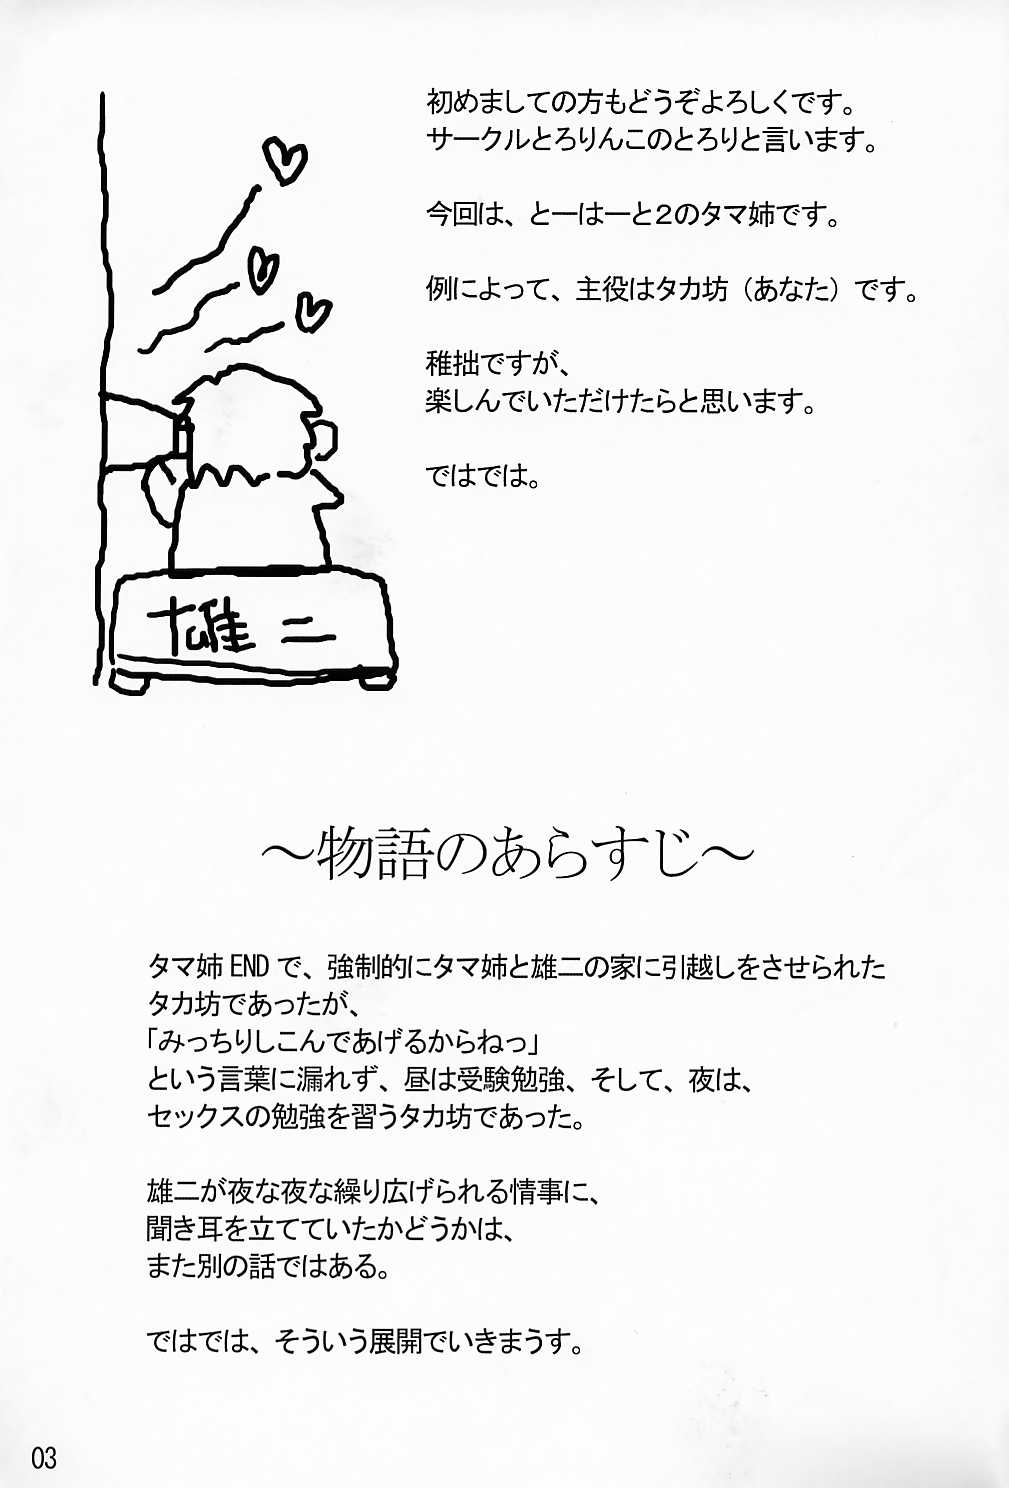 初めましての方もどうぞよろしくです。
サークルとろりんこのとろりと言います。
今回は、とーはーと２のタマ姉です。
例によって、主役はタカ坊（あなた）です。
稚拙ですが、
楽しんでいただけたらと思います。
ではでは。
雄二
～物語のあらすじ～
タマ姉ENDで、強制的にタマ姉と雄二の家に引越しをさせられた
タカ坊であったが、
「みっちりしこんであげるからねっ」
という言葉に漏れず、昼は受験勉強、そして、夜は、
セックスの勉強を習うタカ坊であった。
雄二が夜な夜な繰り広げられる情事に、
聞き耳を立てていたかどうかは、
また別の話ではある。
ではでは、そういう展開でいきまうす。
03